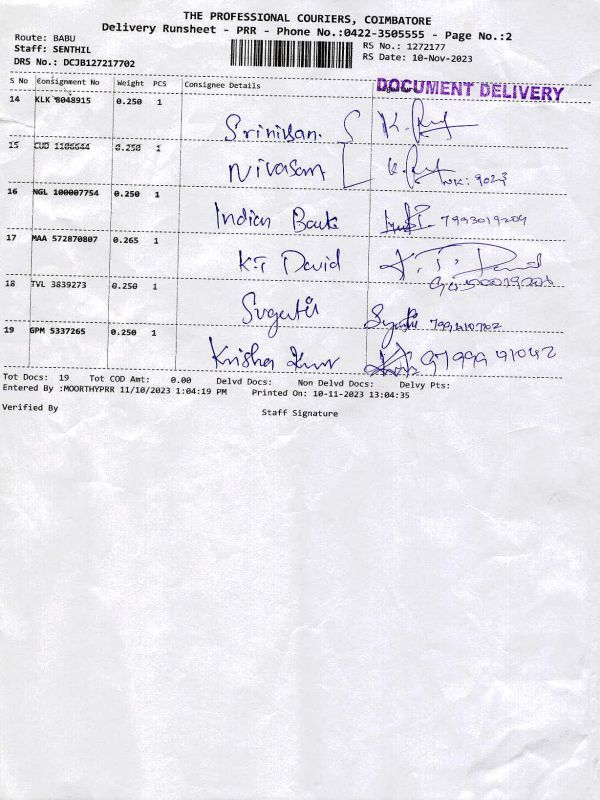 THE PROFESSIONAL COURIERS, COIMBATORE
Delivery Runsheet - PRR - Phone No.:0422-3505555 - Page No.:2
Route: BABU
Staff: SENTHIL
DRS No.: DCJB127217702
RS No.: 1272177
RS Date: 10-Nov-2023
S No Consignment No Weight PCS Consignee Details
DOCUMENT DELIVERY
14 KLK 8048915 0.250 1
Srinivasan. S
15 CUD 1106644 0.250 1
Nivasan
16 NGL 100007754 0.250 1 Indian Bank 7993019204
17 MAA 572870807 0.265 1
K.T David
18 TVL 3839273 0.250 1
19 GPM 5337265 0.250 1
Krisha Kumar
Tot Docs: 19 Tot COD Amt: 0.00 Delvd Docs: Non Delvd Docs: Delvy Pts:
Entered By :MOORTHYPRR 11/10/2023 1:04:19 PM Printed On: 10-11-2023 13:04:35
Verified By Staff Signature